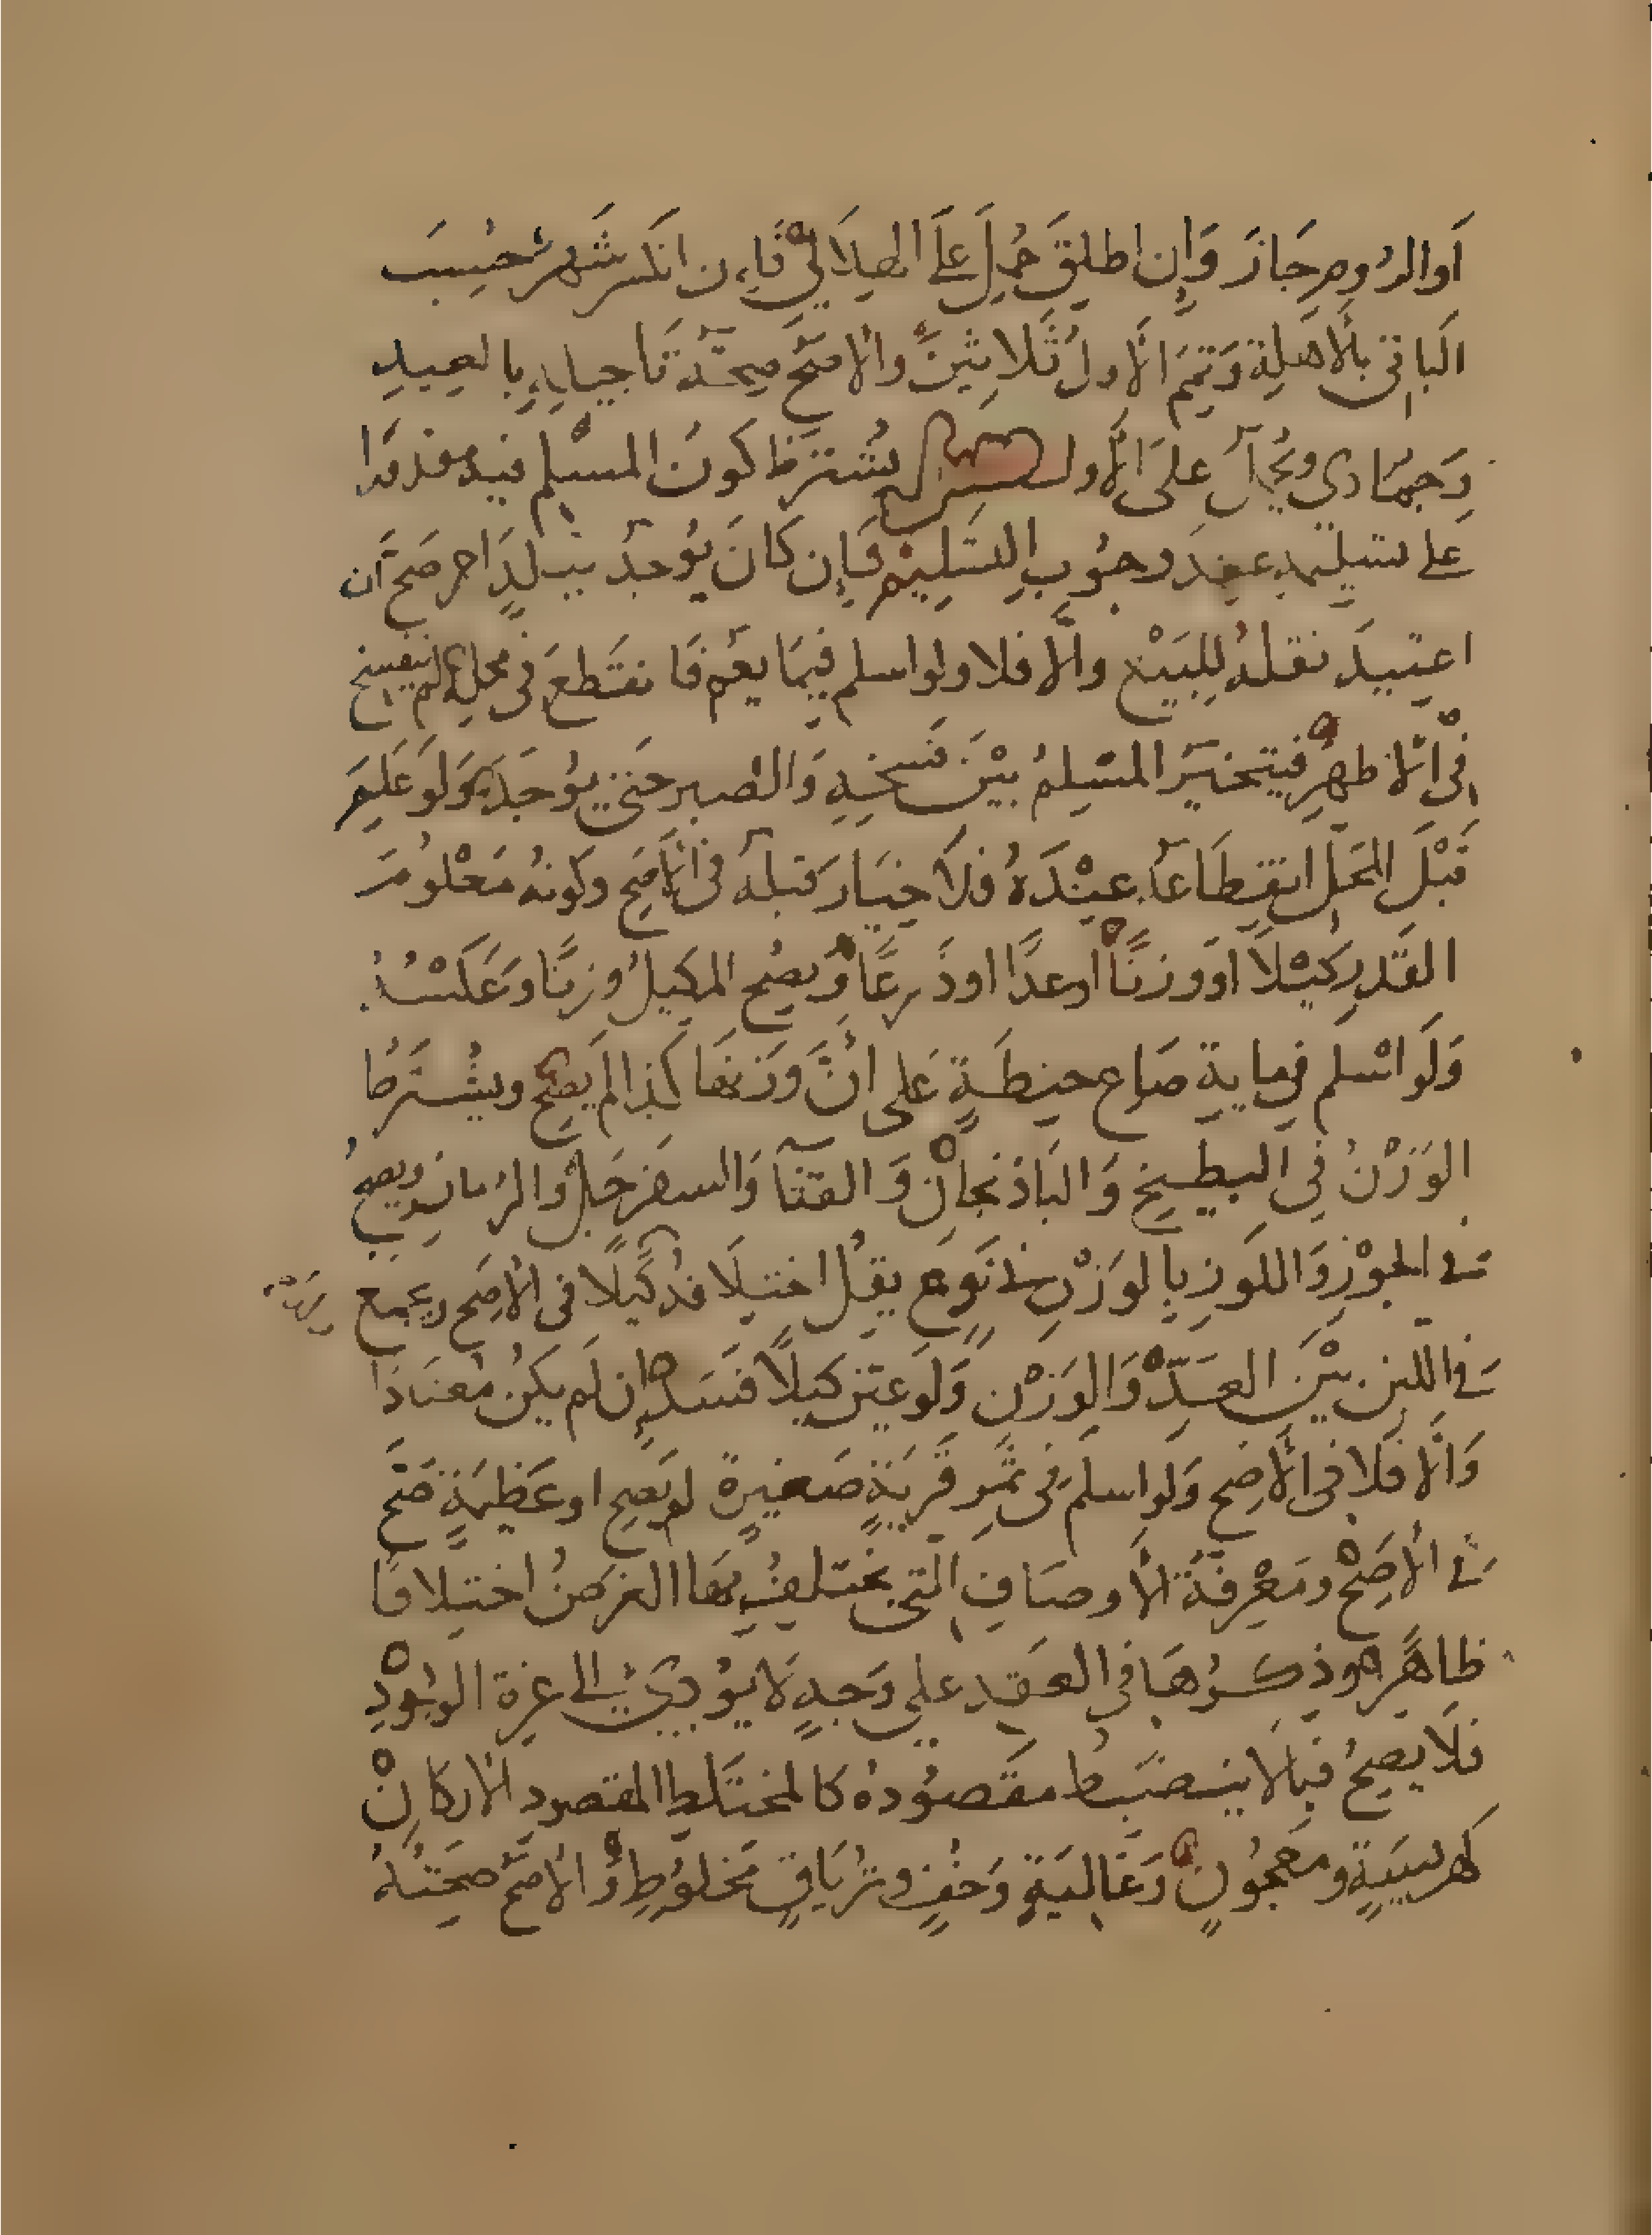 أو الروم جاز وإن اطلق حمل على الهلالي فإن انكسر شهر حسب
الباقي بالأهلة وتمم الأول ثلاثين والأصح صحة تأجيله بالعيد
وجمادى ويحمل على الأول فصل يشترط كون المسلم فيه مقدورا
على تسليمه عند وجوب التسليم فإن كان يوجد ببلد اخر صح ان
اعتيد نقله للبيع وإلا فلا ولو اسلم فيما يعم فانقطع في محله لم ينفسخ
في الأظهر فيتخير المسلم بين فسخه والصبر حتى يوجد ولو علم
قبل المحل انقطاعه عنده فلا خيار قبله في الأصح وكونه معلوم
القدر كيلا أو وزنا أو عدا أو ذرعا ويصح المكيل وزنا وعكسه
ولو اسلم في ماية صاع حنطة على أن وزنها كذا لم يصح ويشترط
الوزن في البطيخ والباذنجان والقثا والسفرجل والرمان ويصح
في الجوز واللوز بالوزن في نوع يقل اختلافه كيلا في الأصح ويجمع
في اللبن بين العد والوزن ولو عين كيلا فسد إن لم يكن معتادا
وإلا فلا في الأصح ولو اسلم في ثمر قرية صغيرة لم يصح أو عظيمة صح
في الأصح ومعرفة الأوصاف التي يختلف بها الغرض اختلافا
ظاهرا وذكرها في العقد على وجه لا يؤدي إلى عزة الوجود
فلا يصح فيما لا ينضبط مقصوده كالمختلط المقصود الأركان
كهريسة ومعجون وغالية وخف وترياق مخلوط والأصح صحته